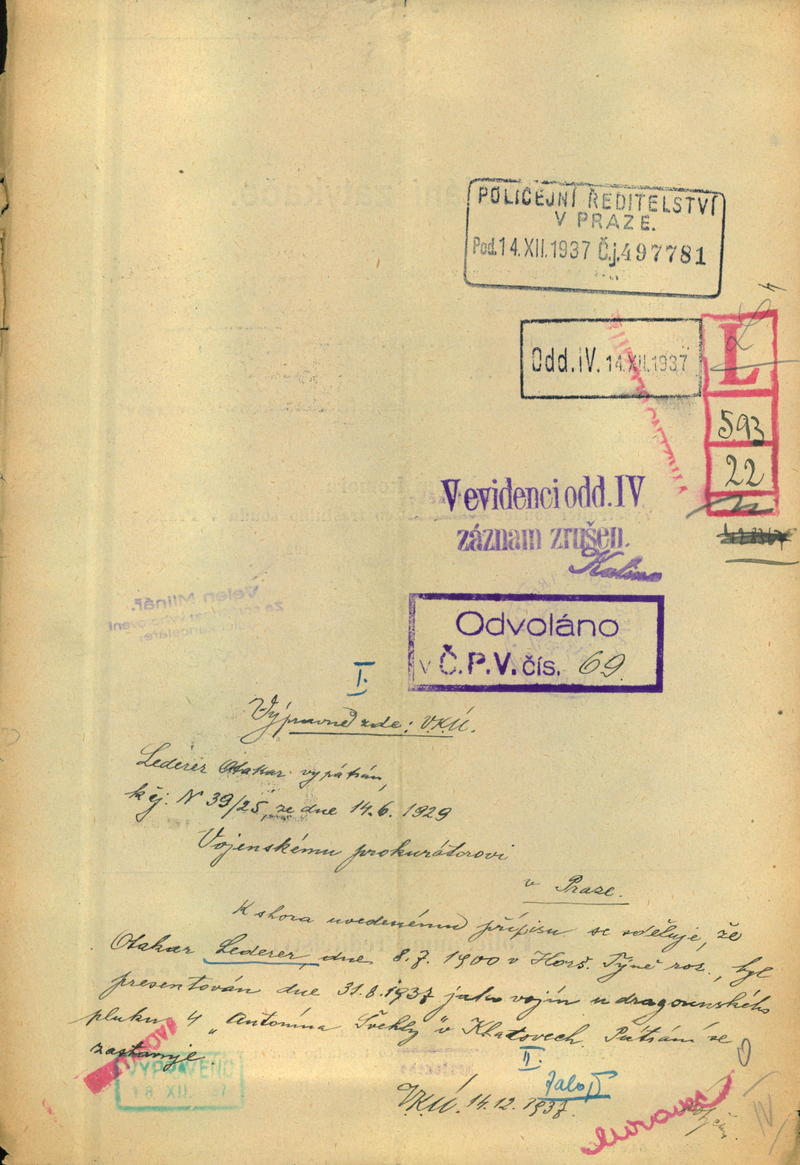 POLICEJNÍ ŘEDITELSTVÍ
V PRAZE.
Pod. 14. XII. 1937 Č.j. 497781
Odd. IV. 14. XII. 1937
L
593
22
V evidenci odd. IV
záznam zrušen.
Kalina
Odvoláno
v Č.P.V. čís. 69.
Velen Mlinář.
I.
Výpravně zde: VKÚ.
Lederer Otakar vypátrán,
k čj: N 39/25, ze dne 14.6. 1929
Vojenskému prokurátorovi
v Praze.
K shora uvedenému přípisu se sděluje, že
Otakar Lederer, dne 8.7. 1900 v Horš. Týně roz., byl
presentován dne 31.8.1937 jako vojín u dragounského
pluku 4 „Antonína Švehly" v Klatovech. Pátrání se
zastavuje.
VYPRAVENO
18 XII. 37
II.
Založ
VKÚ. 14.12. 1937.
IV